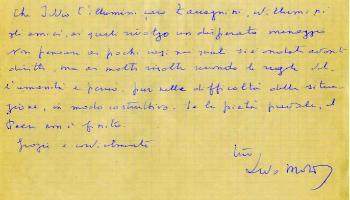 Che Iddio L'illumini, caro Zaccagnini, ed illumini
gli amici, ai quali rivolgo un disperato messaggio
Non pensare ai pochi casi nei quali si è andati avanti
diritti, ma ai molti risolti secondo le regole del
l'umanità e perciò, pur nelle difficoltà della situa
zione, in modo costruttivo. Se la pietà prevale, il
Paese non è finito.
Grazie e cordialmente
tuo
Aldo Moro